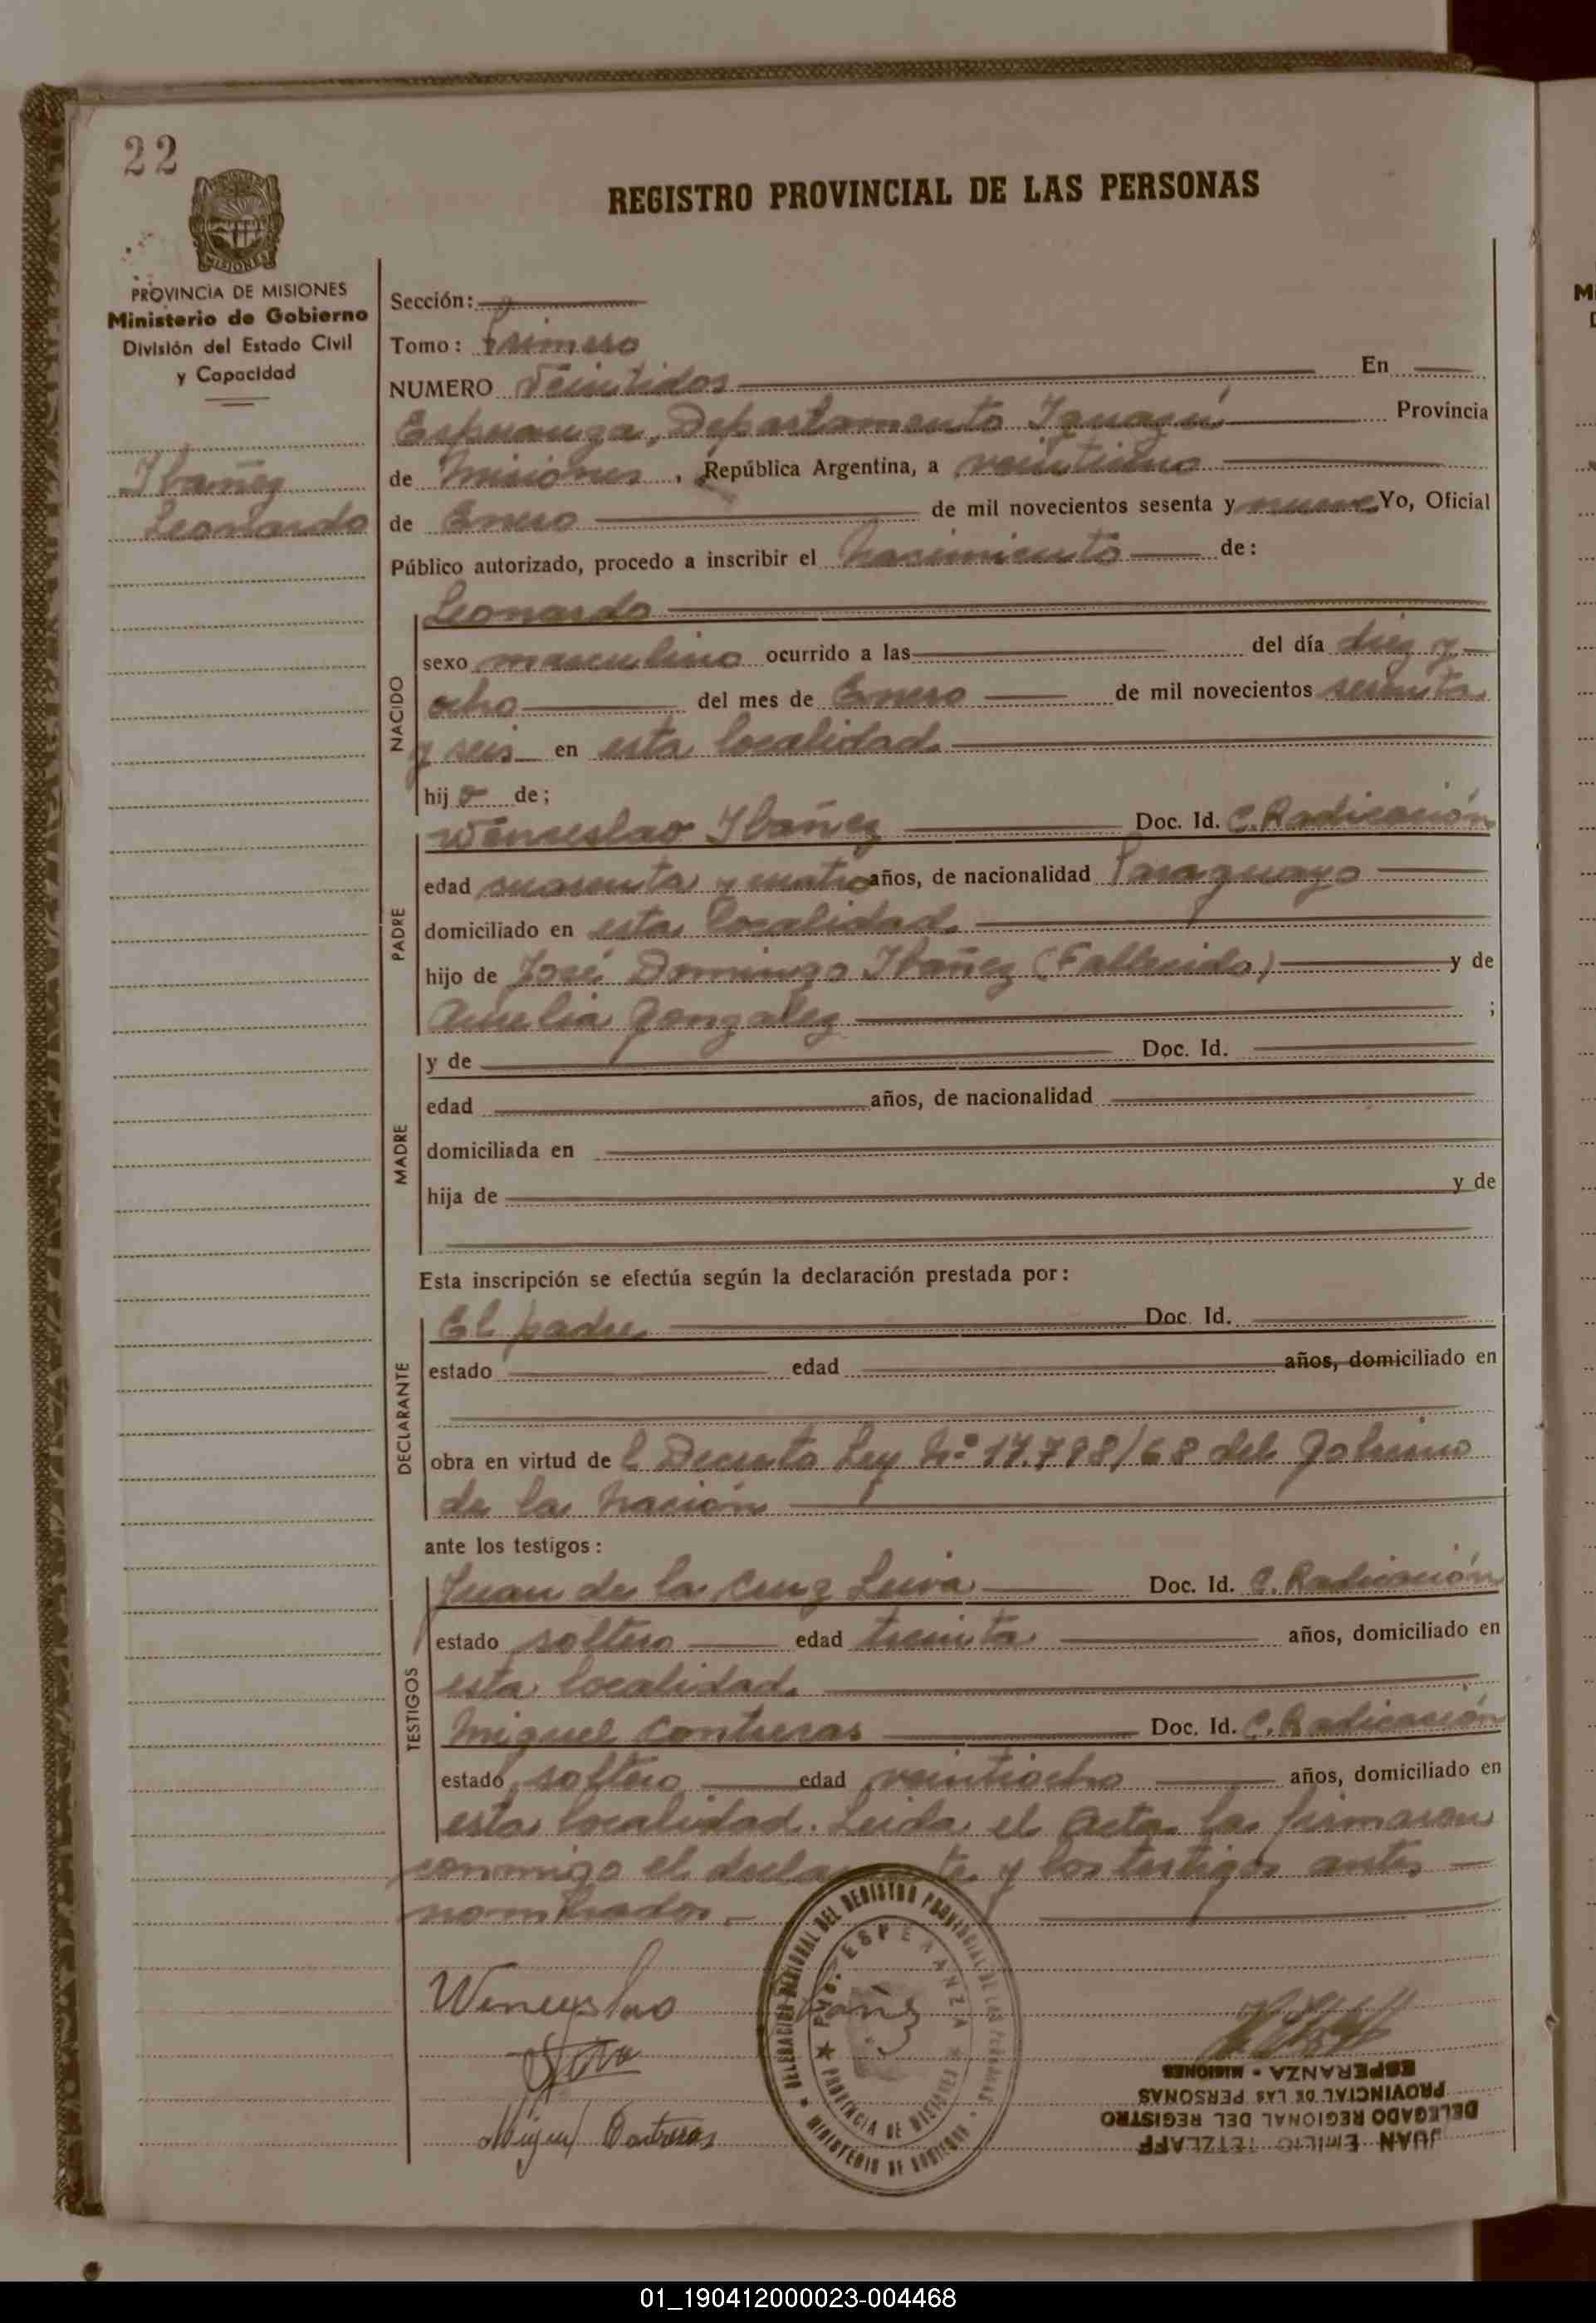 22
REGISTRO PROVINCIAL DE LAS PERSONAS
MISIONES
PROVINCIA DE MISIONES
Ministerio de Gobierno
División del Estado Civil
y Capacidad
Ibañez
Leonardo
Sección:
Tomo: Primero
NUMERO Veintidos En
Esperanza, Departamento Iguazú Provincia
de Misiones, República Argentina, a veintiuno
de Enero de mil novecientos sesenta y nueve Yo, Oficial
Público autorizado, procedo a inscribir el nacimiento de:
NACIDO
Leonardo
sexo masculino ocurrido a las del día diez y
ocho del mes de Enero de mil novecientos sesenta
y seis en esta localidad
hijo de;
PADRE
Wenseslao Ibañez Doc. Id. C. Radicasión
edad cuarenta y cuatro años, de nacionalidad Paraguayo
domiciliado en esta localidad
hijo de José Domingo Ibañez (Fallecido) y de
Gonzalez ;
MADRE
y de Doc. Id.
edad años, de nacionalidad
domiciliada en
hija de y de
Esta inscripción se efectúa según la declaración prestada por:
DECLARANTE
El padre Doc. Id.
estado edad años, domiciliado en
obra en virtud de l Decreto Ley Nº 17.798/68 del Gobierno
de la Nación
ante los testigos:
TESTIGOS
Juan de la Cruz Leiva Doc. Id. C. Radicasión
estado soltero edad treinta años, domiciliado en
esta localidad
Miguel Contreras Doc. Id. C. Radicasión
estado soltero edad veintiocho años, domiciliado en
esta localidad. Leida el Acta la firmaron
conmigo el declarante y los testigos antes
nombrados.-
DELEGACION REGIONAL DEL REGISTRO PROVINCIAL DE LAS PERSONAS
MINISTERIO DE GOBIERNO
ESPERANZA
PROVINCIA DE MISIONES
Miguel Contreras
JUAN EMILIO TETZLAFF
DELEGADO REGIONAL DEL REGISTRO
PROVINCIAL DE LAS PERSONAS
ESPERANZA - MISIONES
01_190412000023-004468